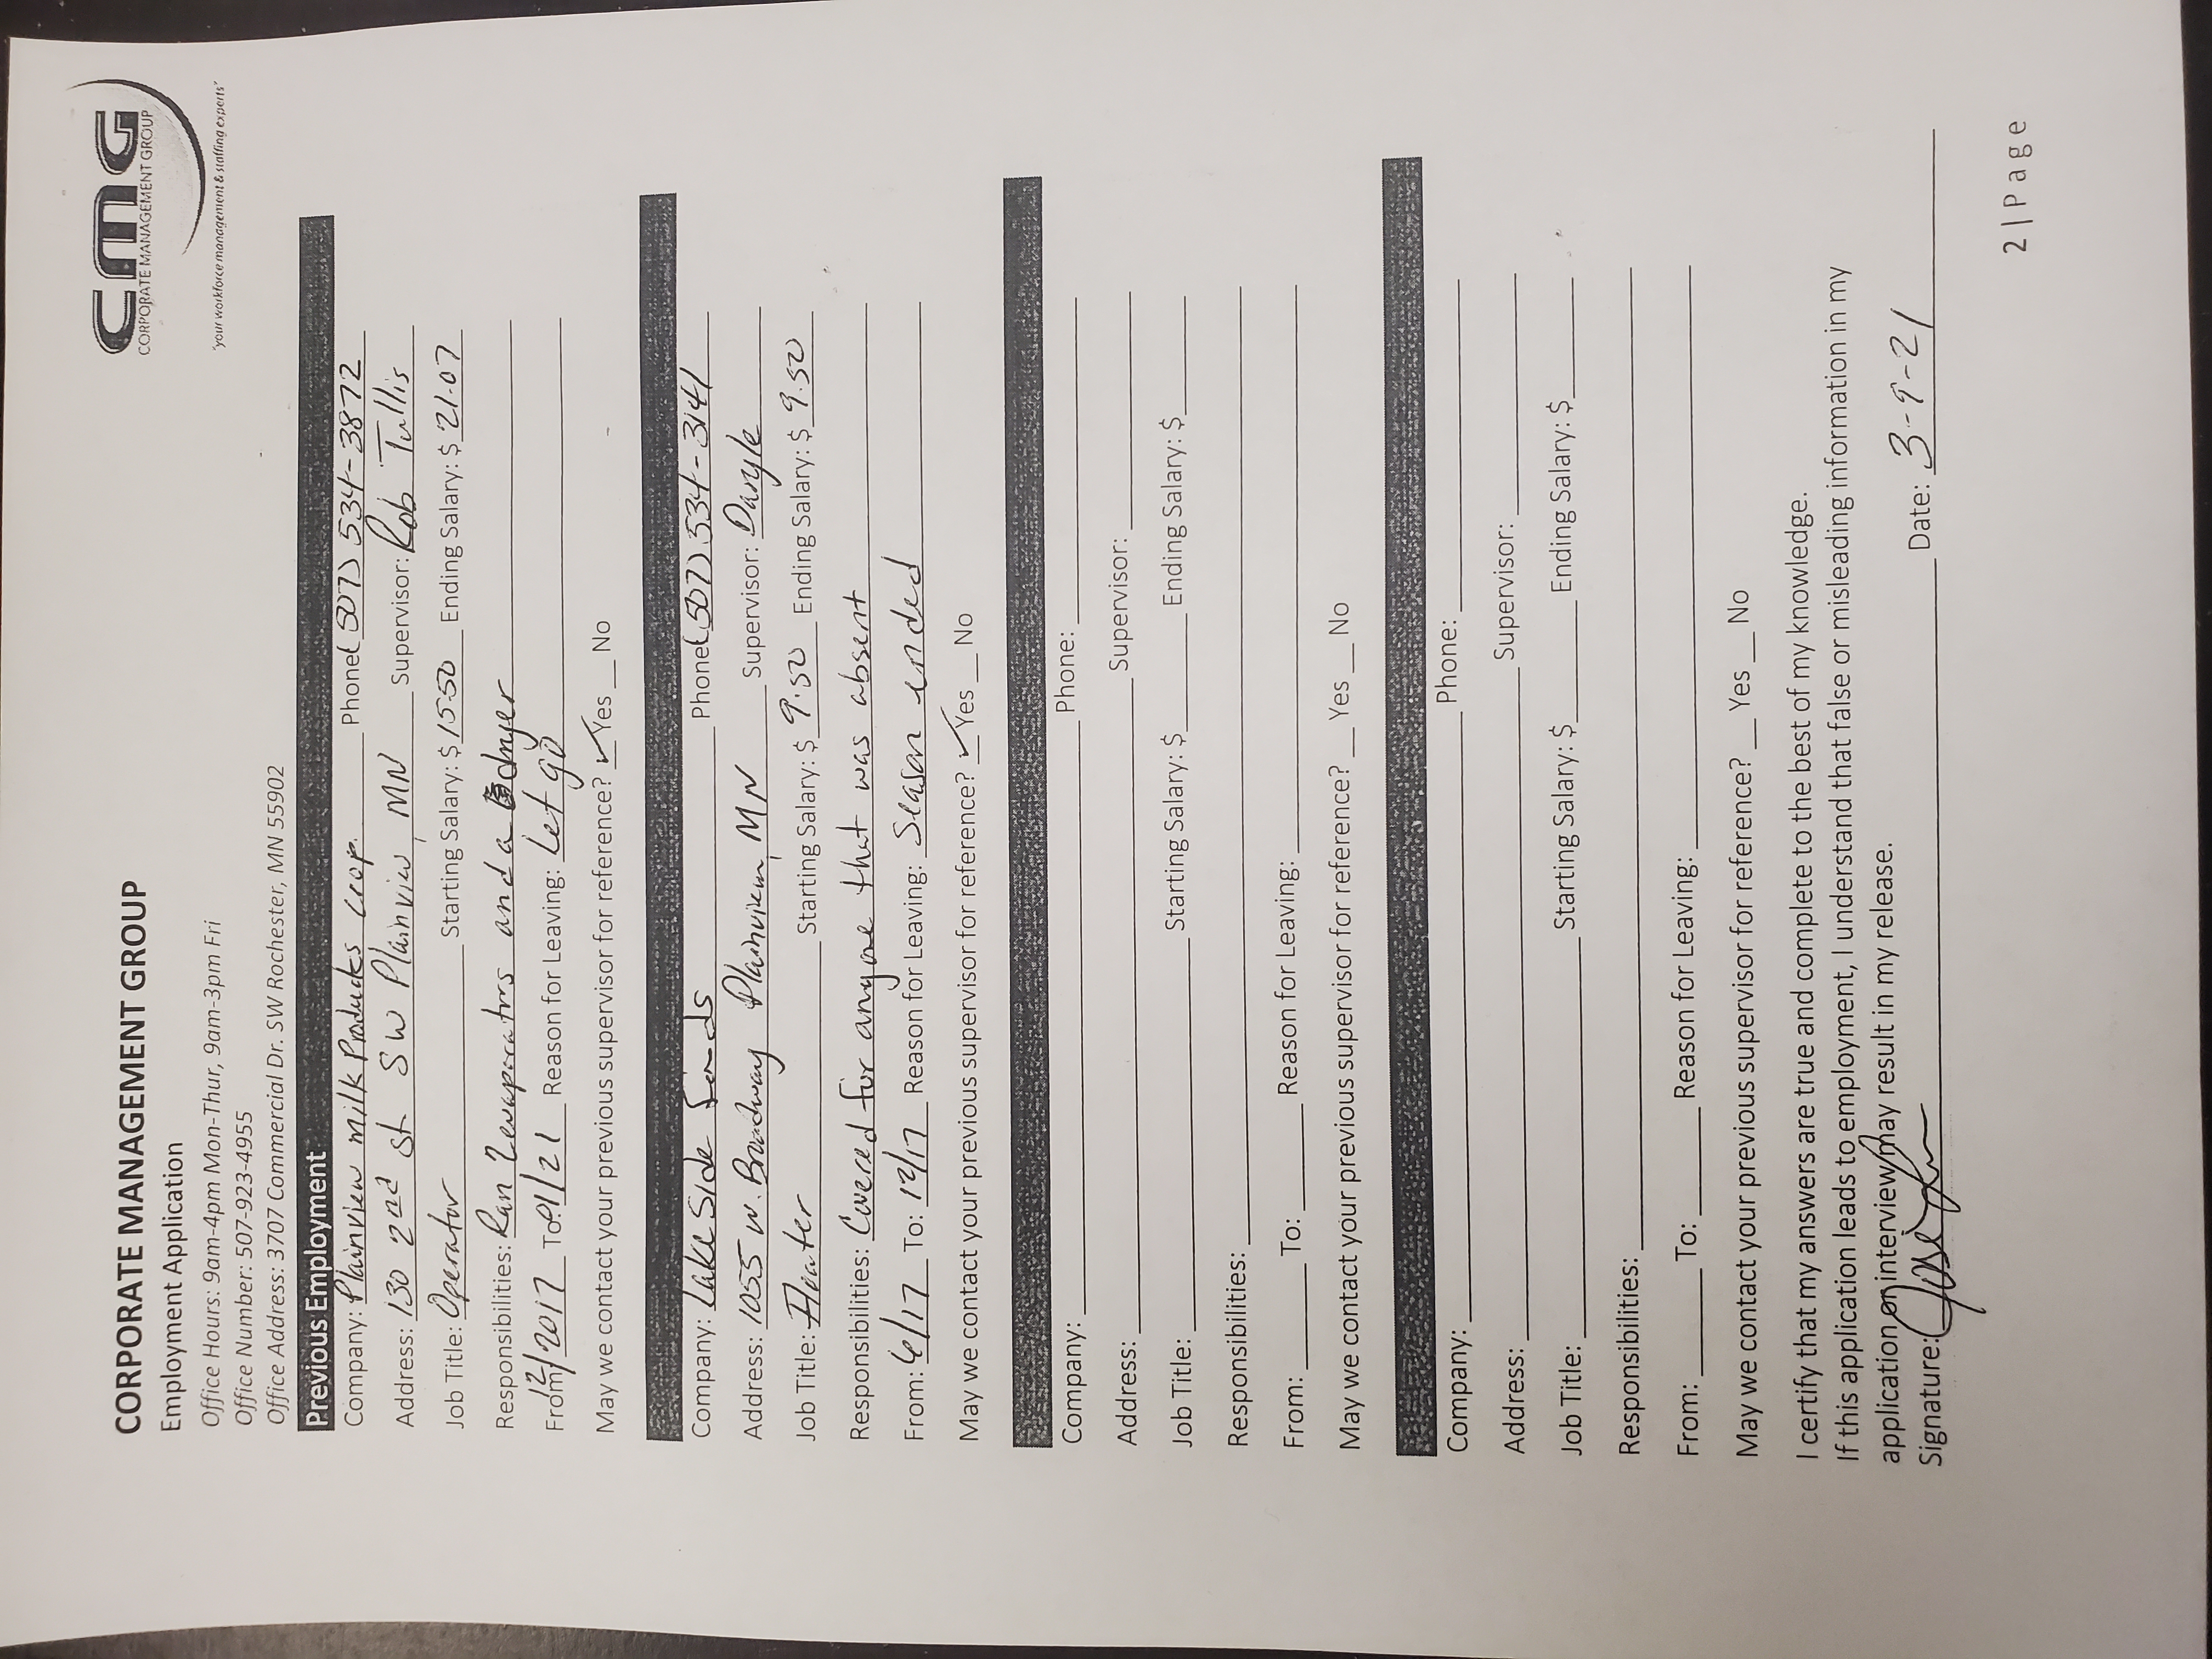 CORPORATE MANAGEMENT GROUP
Employment Application
Office Hours: 9am-4pm Mon-Thur, 9am-3pm Fri
Office Number: 507-923-4955
Office Address: 3707 Commercial Dr. SW Rochester, MN 55902
cmg
CORPORATE MANAGEMENT GROUP
"your workforce management & staffing experts"
Previous Employment
Company: Plainview milk Products Phone: (507) 534-3872
Address: 130 2nd st SW Plainview, MN Supervisor: Rob Tullis
Job Title: Operator Starting Salary: $ 15.50 Ending Salary: $ 21.07
Responsibilities: Ran 2 evaporators and a dryer
From: 12/2017 To: /21 Reason for Leaving: Let go
May we contact your previous supervisor for reference? ✓ Yes __ No
Company: Lake Side Foods Phone: (507) 534-3141
Address: 1055 w. Broadway Plainview, MN Supervisor: Daryle
Job Title: Floater Starting Salary: $ 9.50 Ending Salary: $ 9.50
Responsibilities: Covered for anyone that was absent
From: 6/17 To: 12/17 Reason for Leaving: Season ended
May we contact your previous supervisor for reference? ✓ Yes __ No
Company: Phone:
Address: Supervisor:
Job Title: Starting Salary: $ Ending Salary: $
Responsibilities:
From: To: Reason for Leaving:
May we contact your previous supervisor for reference? __ Yes __ No
Company: Phone:
Address: Supervisor:
Job Title: Starting Salary: $ Ending Salary: $
Responsibilities:
From: To: Reason for Leaving:
May we contact your previous supervisor for reference? __ Yes __ No
I certify that my answers are true and complete to the best of my knowledge.
If this application leads to employment, I understand that false or misleading information in my
application or interview may result in my release.
Signature: Date: 3-9-21
2 | Page